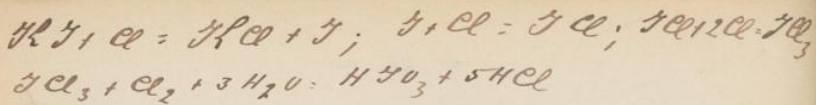 KJ + Cl = KCl + J; J + Cl = JCl; JCl + 2Cl = JCl₃
JCl₃ + Cl₂ + 3H₂O = HJO₃ + 5HCl